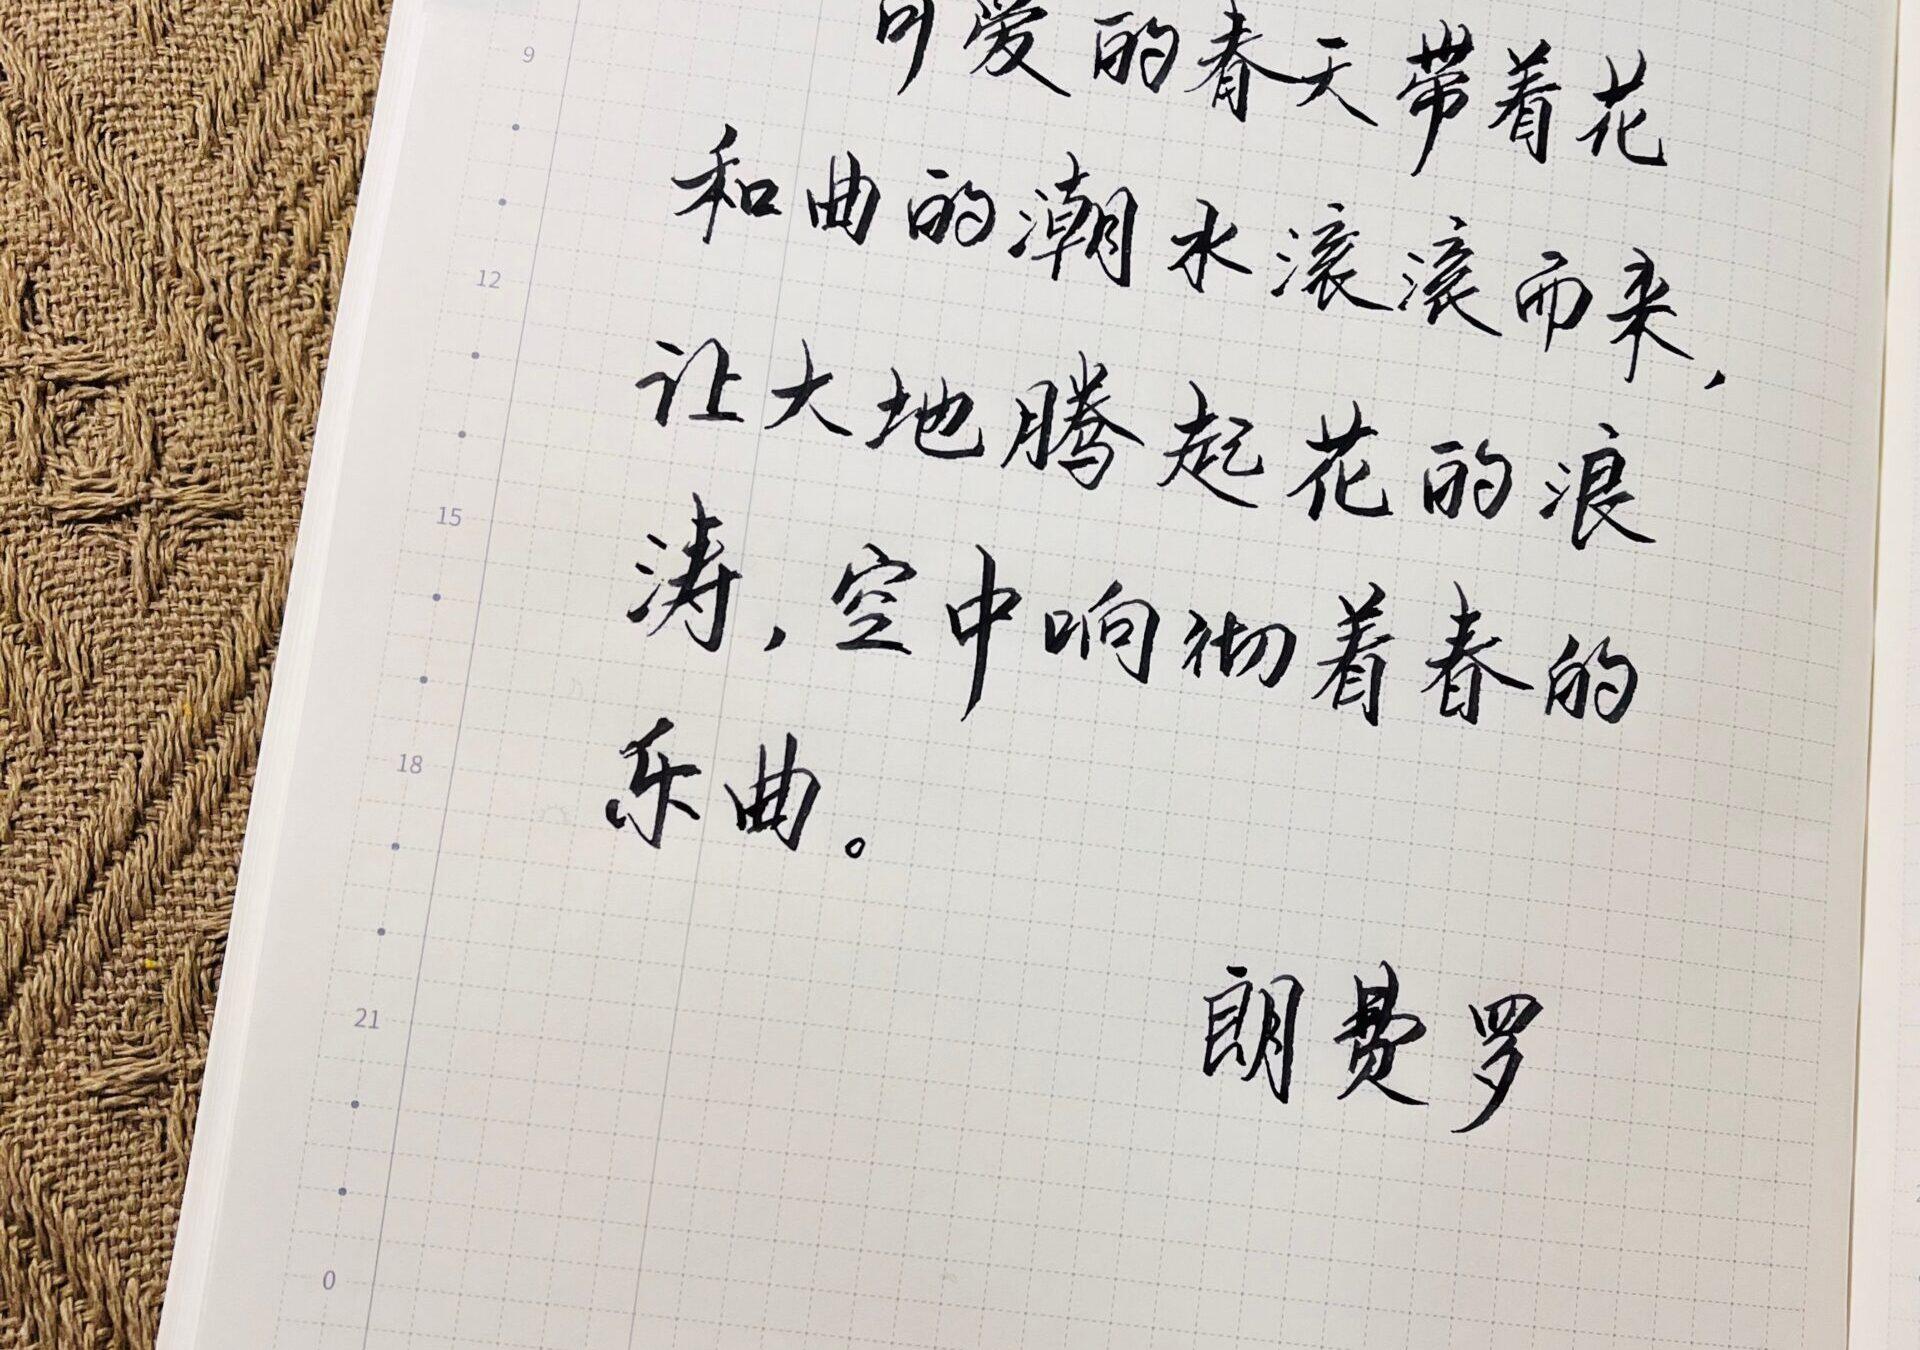 可爱的春天带着花
和曲的潮水滚滚而来，
让大地腾起花的浪
涛，空中响彻着春的
乐曲。
朗费罗
9
12
15
18
21
0